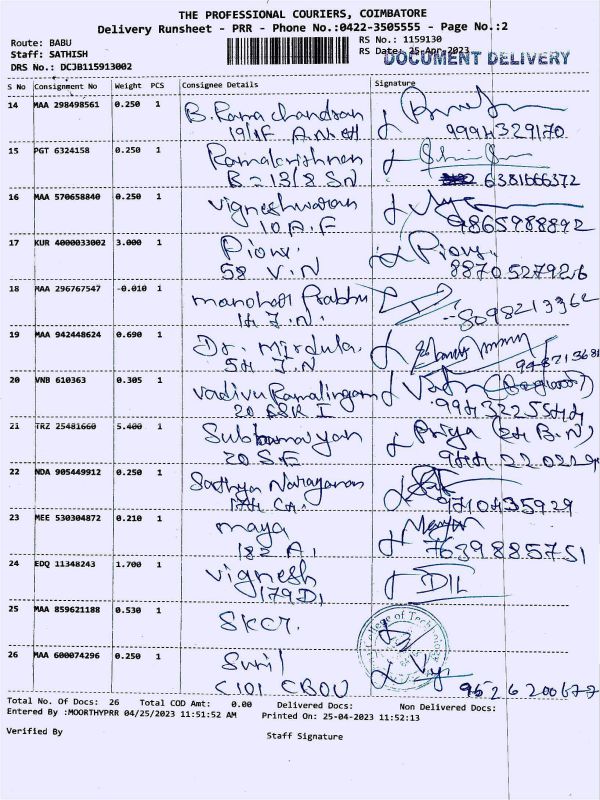 THE PROFESSIONAL COURIERS, COIMBATORE
Delivery Runsheet - PRR - Phone No.:0422-3505555 - Page No.:2
Route: BABU
Staff: SATHISH
DRS No.: DCJB115913002
RS No.: 1159130
RS Date: 25-Apr-2023
DOCUMENT DELIVERY
S No Consignment No Weight PCS Consignee Details Signature
14 MAA 298498561 0.250 1 B. Rama chandran
19/1F
15 PGT 6324158 0.250 1 Ramakrishnan
B=13/8 SN 6381666372
16 MAA 570658840 0.250 1 Vigneshwaran
10 A.F 9865988892
17 KUR 4000033002 3.000 1 Pions. Pions.
58 V.N 8870527926
18 MAA 296767547 -0.010 1 manohar Prabhu
J.N. 8098213362
19 MAA 942448624 0.690 1 Dr. Mirdula.
J.N
20 VNB 610363 0.305 1 Vadivu Ramalingam
20 SSR I
21 TRZ 25481660 5.400 1 Subbarnayan Priya
20 S.F
22 NDA 905449912 0.250 1 Sathya Narayanan
9710435929
23 MEE 530304872 0.210 1 maya
182 A. 7639885751
24 EDQ 11348243 1.700 1 Vignesh DIL
179 D1
25 MAA 859621188 0.530 1 SKCT.
College of Techn
26 MAA 600074296 0.250 1 Sunil
C101 CBOU 9626200677
Total No. Of Docs: 26 Total COD Amt: 0.00 Delivered Docs: Non Delivered Docs:
Entered By :MOORTHYPRR 04/25/2023 11:51:52 AM Printed On: 25-04-2023 11:52:13
Verified By
Staff Signature